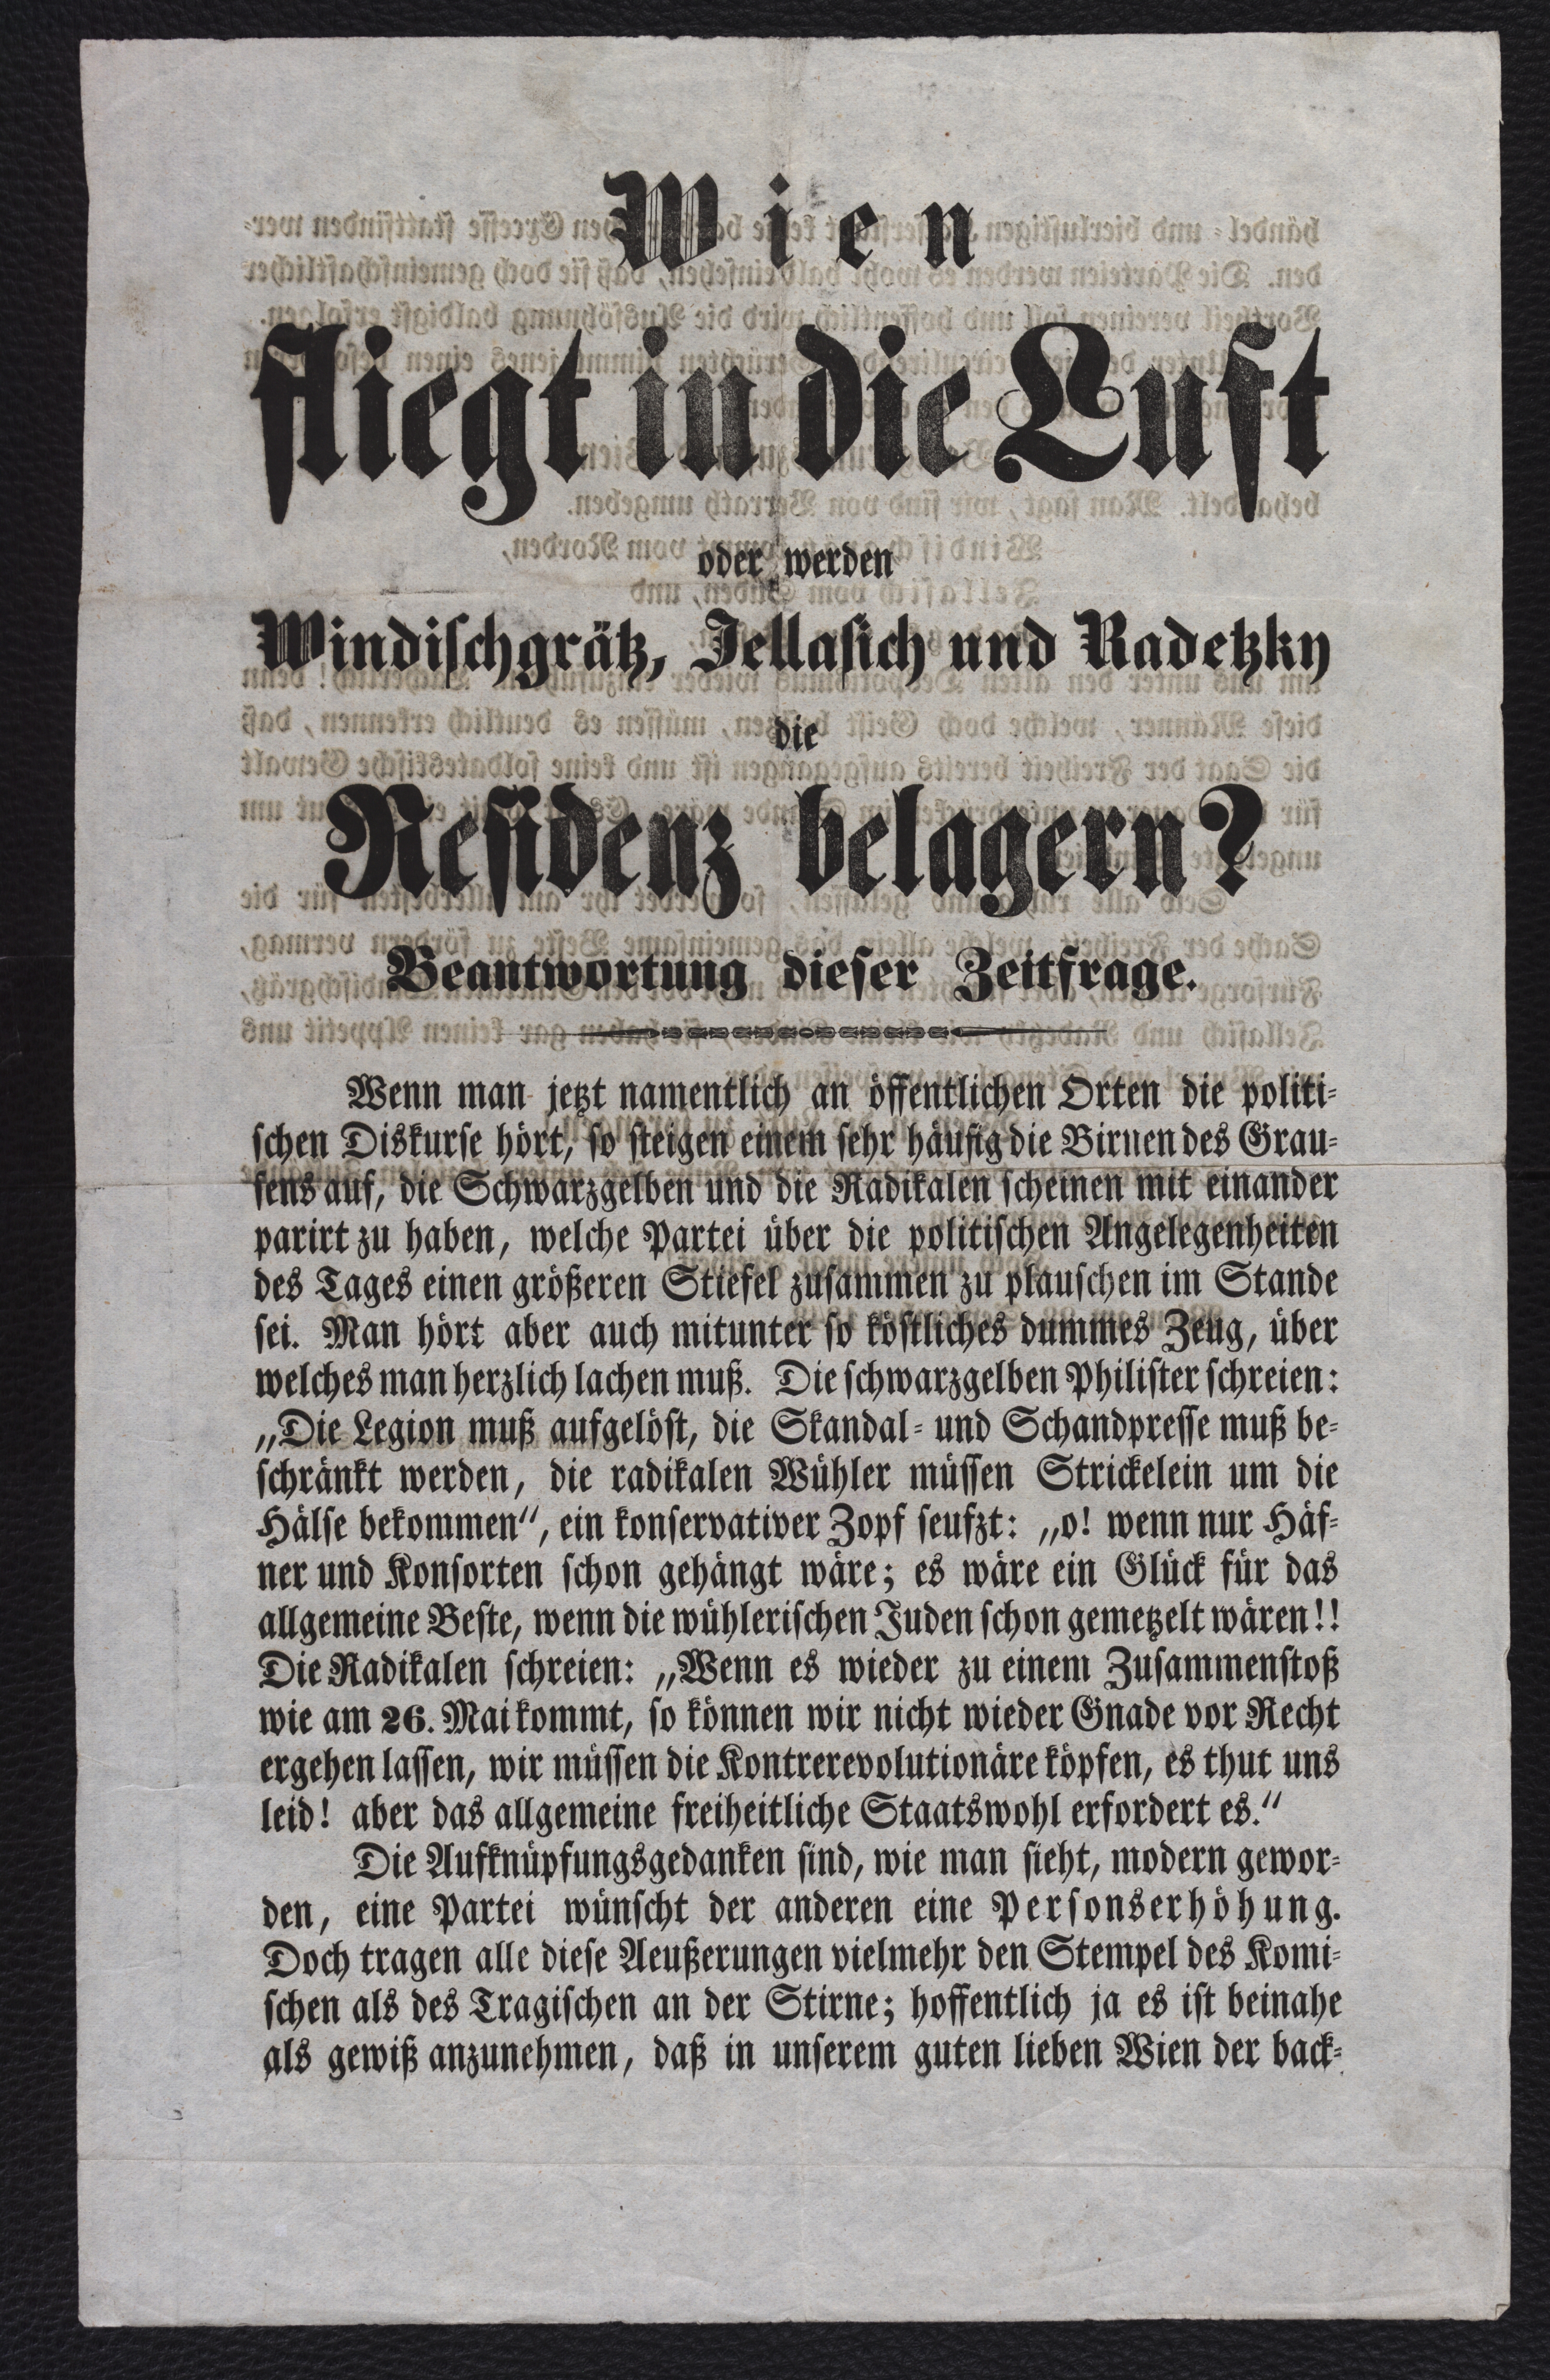 Wien
fliegt in die Luft
oder werden
Windischgrätz, Jellasich und Radetzky
die
Residenz belagern?
Beantwortung dieser Zeitfrage.
Wenn man jetzt namentlich an öffentlichen Orten die politi-
schen Diskurse hört, so steigen einem sehr häufig die Birnen des Grau-
sens auf, die Schwarzgelben und die Radikalen scheinen mit einander
parirt zu haben, welche Partei über die politischen Angelegenheiten
des Tages einen größeren Stiefel zusammen zu plauschen im Stande
sei. Man hört aber auch mitunter so köstliches dummes Zeug, über
welches man herzlich lachen muß. Die schwarzgelben Philister schreien:
„Die Legion muß aufgelöst, die Skandal- und Schandpresse muß be-
schränkt werden, die radikalen Wühler müssen Strickelein um die
Hälse bekommen“, ein konservativer Zopf seufzt: „o! wenn nur Häf-
ner und Konsorten schon gehängt wäre; es wäre ein Glück für das
allgemeine Beste, wenn die wühlerischen Juden schon gemetzelt wären!!
Die Radikalen schreien: „Wenn es wieder zu einem Zusammenstoß
wie am 26. Mai kommt, so können wir nicht wieder Gnade vor Recht
ergehen lassen, wir müssen die Kontrerevolutionäre köpfen, es thut uns
leid! aber das allgemeine freiheitliche Staatswohl erfordert es.“
Die Aufknüpfungsgedanken sind, wie man sieht, modern gewor-
den, eine Partei wünscht der anderen eine Personserhöhung.
Doch tragen alle diese Aeußerungen vielmehr den Stempel des Komi-
schen als des Tragischen an der Stirne; hoffentlich ja es ist beinahe
als gewiß anzunehmen, daß in unserem guten lieben Wien der back-